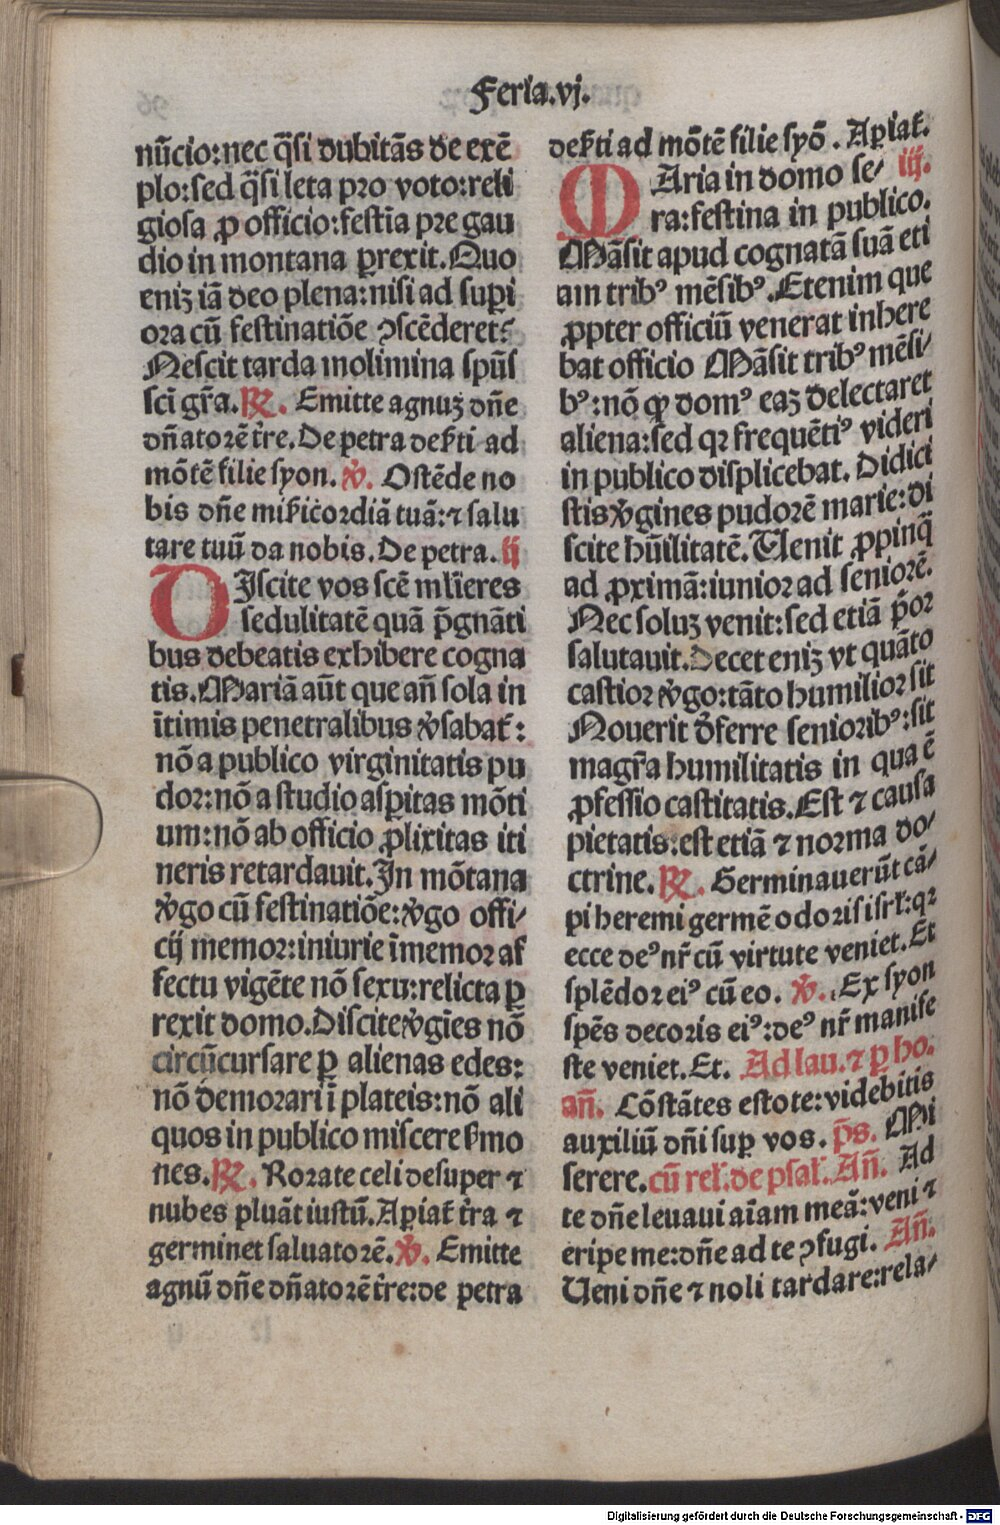 Feria.vj.
nũcio:nec q̃si dubitãs de exẽ
plo:sed q̃si leta pro voto:reli
giosa ꝓ officio:festĩa pre gau
dio in montana ꝑrexit.Quo
eniꝫ iã deo plena:nisi ad suꝑi
ora cũ festinatiõe ꝯscẽderet?
Nescit tarda molimina spũs
sci gr̃a.℞. Emitte agnuꝫ dñe
dñatorẽ tr̃e.De petra deẜti ad
mõtẽ filie syon.℣. Ostẽde no
bis dñe miẜicordiã tuã:⁊ salu
tare tuũ da nobis.De petra.ij
DIscite vos scẽ ml̃ieres
sedulitatẽ quã p̃gnãti
bus debeatis exhibere cogna
tis.Mariã aũt que añ sola in
ĩtimis penetralibus ꝟsabat̃:
nõ a publico virginitatis pu
dor:nõ a studio asꝑitas mõti
um:nõ ab officio ꝓlixitas iti
neris retardauit.In mõtana
ꝟgo cũ festinatiõe:ꝟgo offi/
cij memor:iniurie ĩmemor af
fectu vigẽte nõ sexu:relicta ꝑ
rexit domo.Discite ꝟgĩes nõ
circũcursare ꝑ alienas edes:
nõ demorari ĩ plateis:nõ ali
quos in publico miscere ẜmo
nes.℞. Rorate celi desuper ⁊
nubes pluãt iustũ.Aꝑiat̃ tr̃a ⁊
germinet saluatorẽ.℣. Emitte
agnũ dñe dñatorẽ tr̃e:de petra
deẜti ad mõtẽ filie syõ. Aꝑiat̃.
MAria in domo se/ iij.
ra:festina in publico.
Mãsit apud cognatã suã eti
am tribꝰ mẽsibꝰ.Etenim que
ꝓpter officiũ venerat inhere
bat officio Mãsit tribꝰ mẽsi/
bꝰ:nõ ꝙ domꝰ eaꝫ delectaret
aliena:sed qꝛ frequẽtiꝰ videri
in publico displicebat. Didici
stis ꝟgines pudorẽ marie:di
scite hũilitatẽ.Uenit ꝓpinq̃
ad ꝓximã:iunior ad seniorẽ.
Nec soluꝫ venit:sed etiã p̃or
salutauit.Decet eniꝫ vt quãto
castior ꝟgo:tãto humilior sit
Nouerit d̃ferre senioribꝰ:sit
magr̃a humilitatis in qua ẽ
ꝓfessio castitatis.Est ⁊ causa
pietatis:est etiã ⁊ norma do/
ctrine.℞. Germinauerũt cã/
pi heremi germẽ odoris isrl̃:qꝛ
ecce deꝰ nr̃ cũ virtute veniet.Et
splẽdor eiꝰ cũ eo. ℣. Ex syon
spẽs decoris eiꝰ:deꝰ nr̃ manife
ste veniet.Et. Ad lau.⁊ ꝑ ho.
añ. Cõstãtes estote:videbitis
auxiliũ dñi suꝑ vos. p̃s. Mi
serere.cũ rel̃.de psal̃.Añ. Ad
te dñe leuaui aĩam meã:veni ⁊
eripe me:dñe ad te ꝯfugi. Añ.
Ueni dñe ⁊ noli tardare:rela/
Digitalisierung gefördert durch die Deutsche Forschungsgemeinschaft - DFG